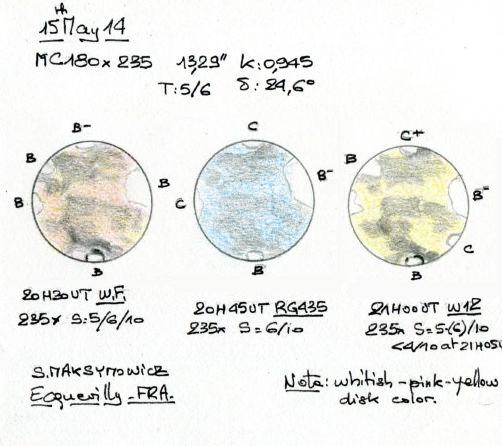 15th May 14
MC180x235 13,29" k:0,945
T:5/6 δ: 24,6°
B-
B
B
B
B
C
B-
C
B
C+
B
B-
C
B
20H30UT W.F.
235x S:5/6/10
20H45UT RG435
235x S=6/10
21H00UT W12
235x S=5-(6)/10
<4/10 at 21H05U
S.MAKSYMOWICZ
Ecquevilly-FRA.
Note: whitish-pink-yellow
disk color.